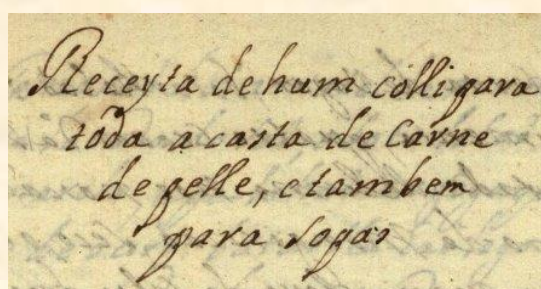 Receyta de hum colli para
toda a casta de Carne
de pelle, e tambem
para sopas